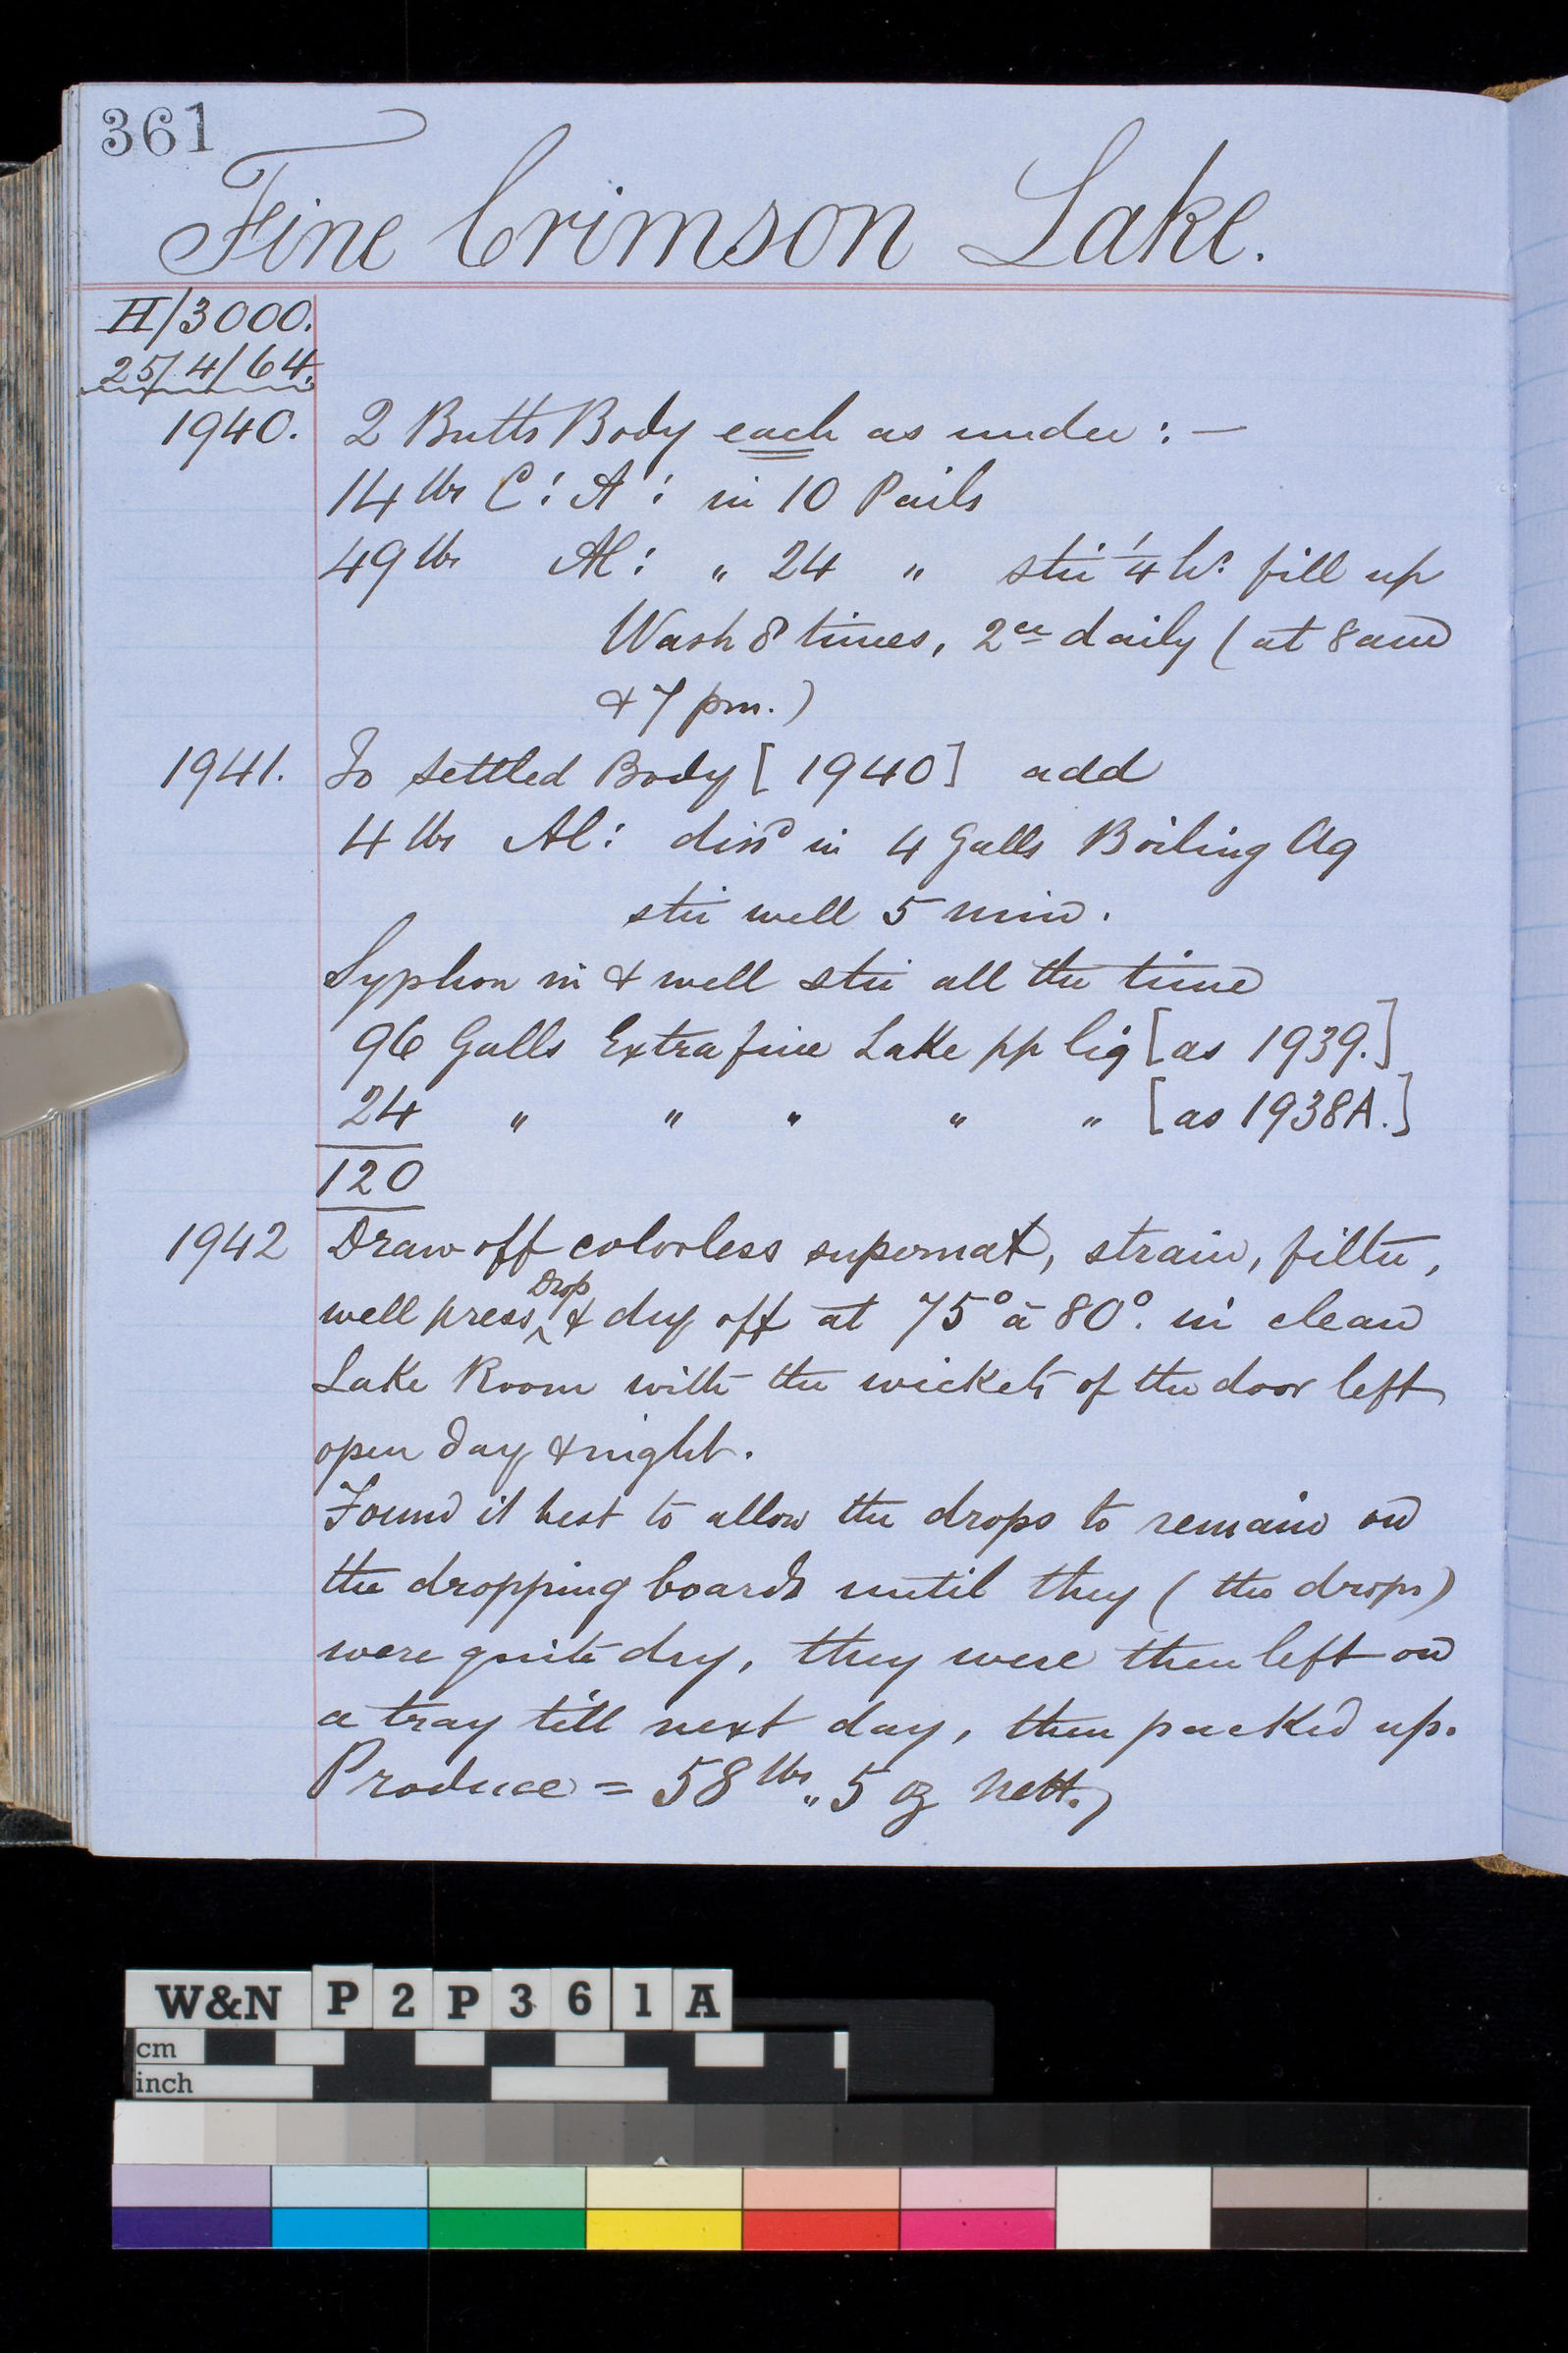 361
Fine Crimson Lake.
H/3000.
25/4/64.
1940. 2 Butts Body each as under : —
14 lbs C : A : in 10 Pails
49 lbs Al : " 24 " stir 1/4 hr. fill up
Wash 8 times, 2ce daily ( at 8 am
& 7 pm. )
1941. To settled Body [ 1940 ] add
4 lbs Al : dissd in 4 Galls Boiling Aq
stir well 5 min.
Syphon in & well stir all the time
96 Galls Extra fine Lake pp liq [ as 1939. ]
24 " " " " " [ as 1938A. ]
120
1942 Draw off colorless supernat, strain, filter,
well press, Drop & dry off at 75° à 80°. in clean
Lake Room with the wickets of the door left
open day & night.
Found it best to allow the drops to remain on
the dropping boards until they ( the drops )
were quite dry, they were then left on
a tray till next day, then packed up.
Produce = 58 lbs " 5 oz nett.
W&N P2P361A
cm
inch